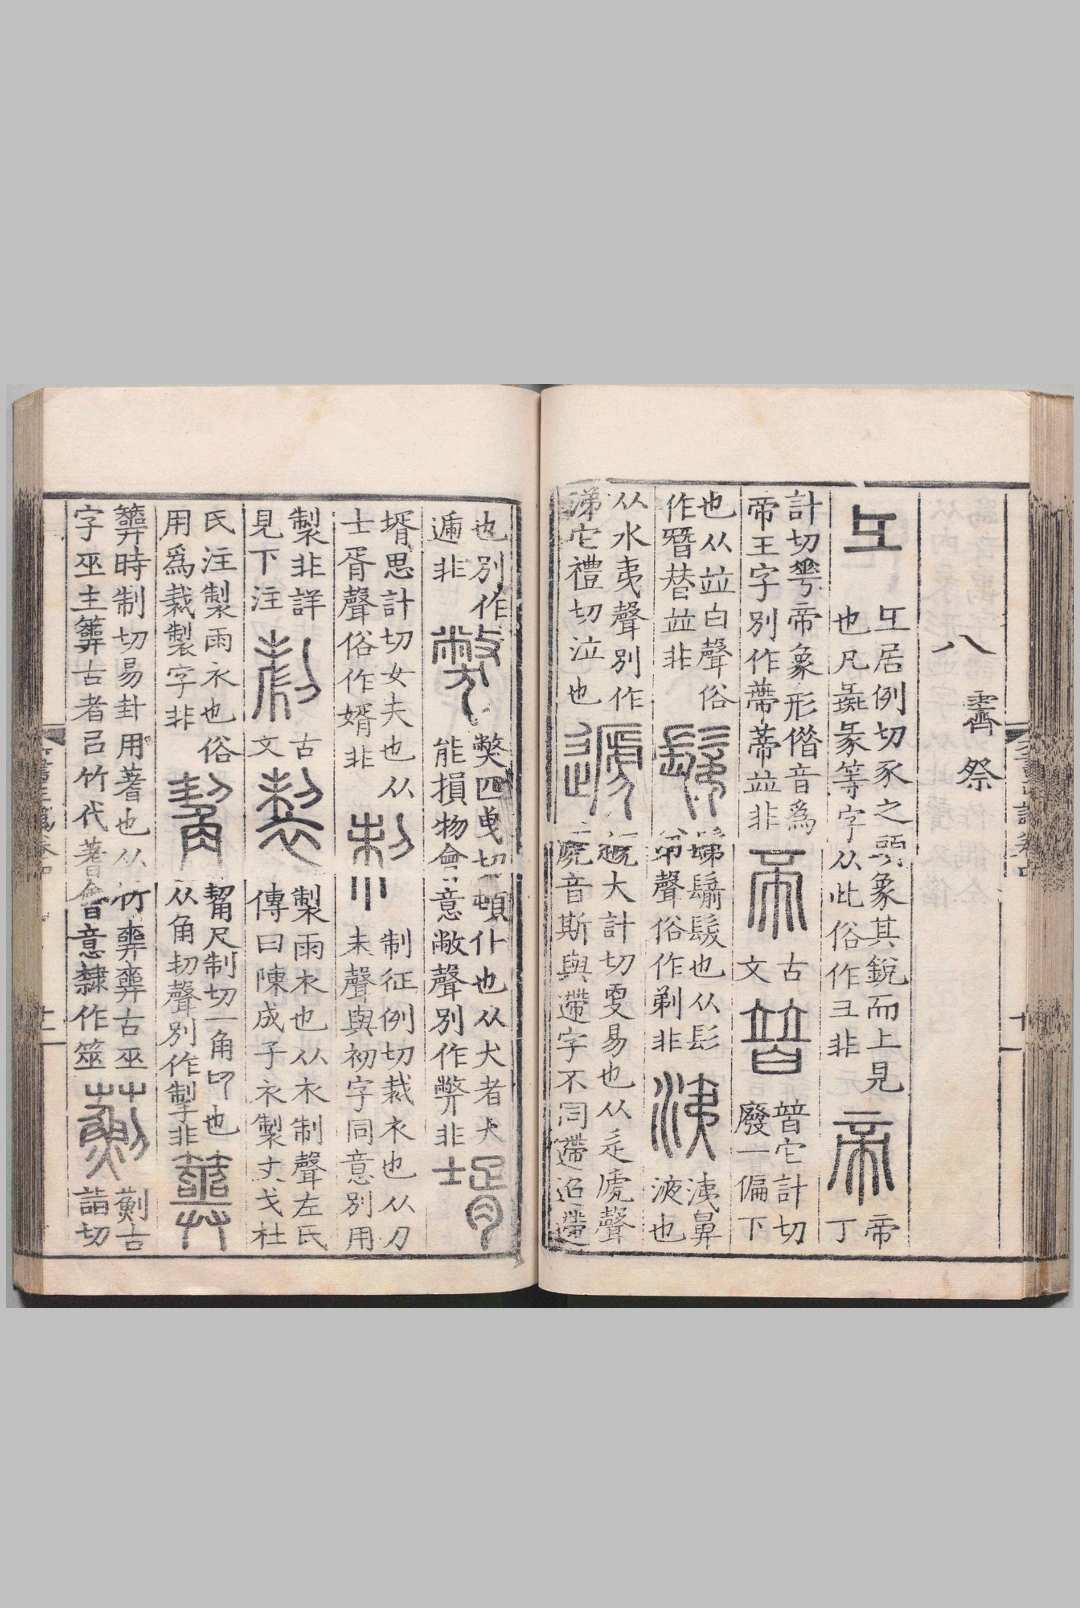 八 霽祭
彑
彑居例切豕之頭象其銳而上見
也凡彘彖等字从此俗作彐非
帝
帝
丁
計切蕚帝象形借音為
帝王字別作蔕蒂並非
帝
古
文
暜
暜它計切
廢一偏下
也从並白聲俗
作朁替並非
鬀
髢鬄髲也从髟
弟聲俗作剃非
洟
洟鼻
液也
从水夷聲別作
涕它禮切泣也
遞
遞大計切更易也从辵虒聲
虒音斯與遰字不同遰迢遰
也別作
遞非
獘
獘毘曳切頓仆也从犬者犬
能損物會意敝聲別作弊非
壻
壻思計切女夫也从
士胥聲俗作婿非
制
制征例切裁衣也从刀
未聲與初字同意別用
製非詳
見下注
古
文
製
製雨衣也从衣制聲左氏
傳曰陳成子衣製丈戈杜
氏注製雨衣也俗
用為裁製字非
觢
觢尺制切一角仰也
从角㓞聲別作掣非
簭
筮時制切易卦用蓍也从竹巫古巫
字巫主筮古者㠯竹代蓍會意隸作筮
薊
薊吉
詣切